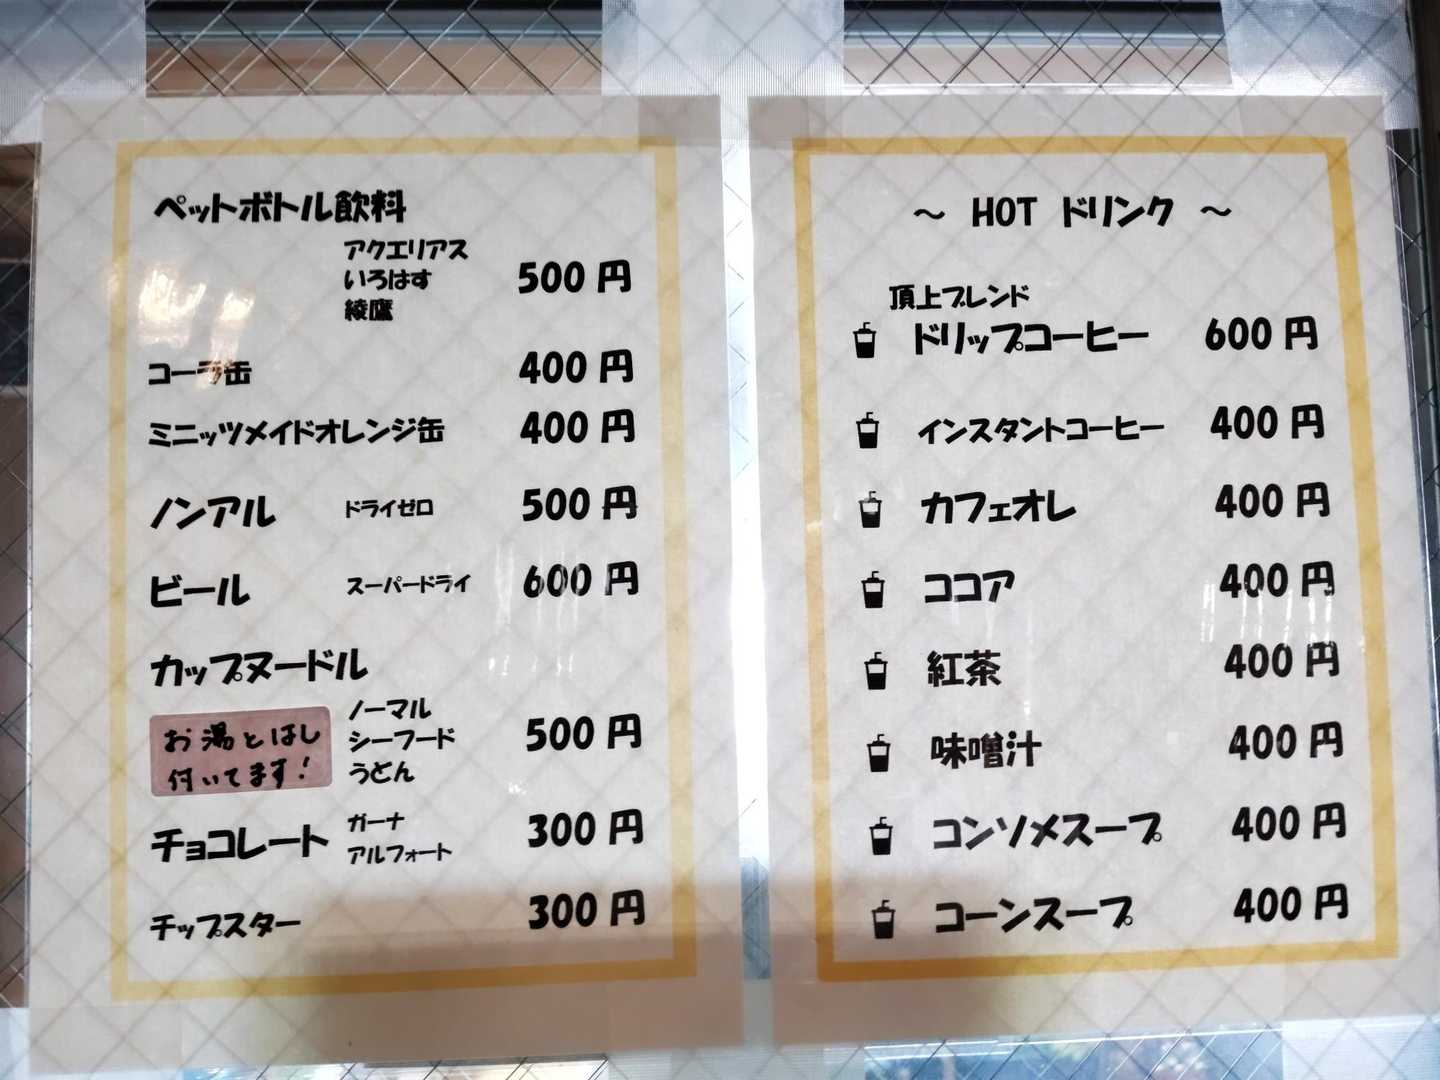 ペットボトル飲料
アクエリアス
いろはす
綾鷹
500 円
コーラ缶 400 円
ミニッツメイドオレンジ缶 400 円
ノンアル ドライゼロ 500 円
ビール スーパードライ 600 円
カップヌードル
お湯とはし
付いてます!
ノーマル
シーフード
うどん
500 円
チョコレート
ガーナ
アルフォート
300 円
チップスター 300 円
～ HOT ドリンク ～
頂上ブレンド
ドリップコーヒー 600 円
インスタントコーヒー 400 円
カフェオレ 400 円
ココア 400 円
紅茶 400 円
味噌汁 400 円
コンソメスープ 400 円
コーンスープ 400 円